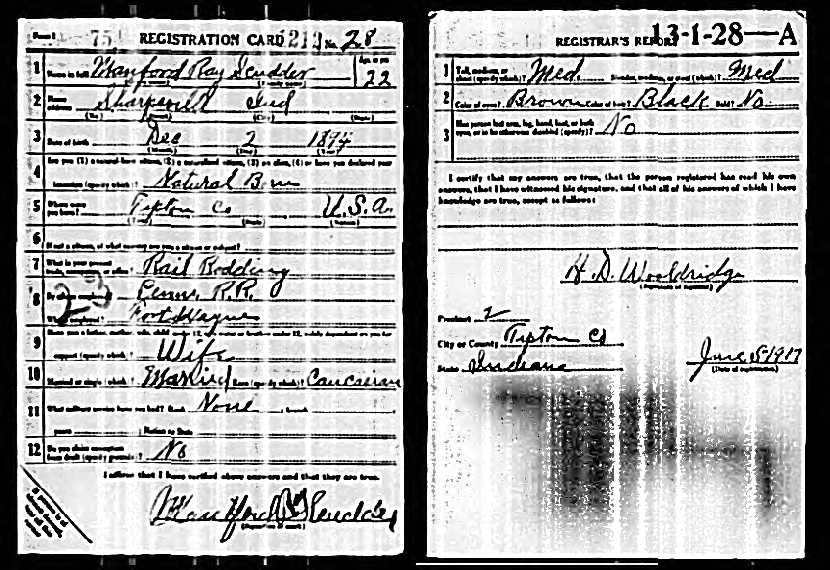 Form 1 75 REGISTRATION CARD 212 No. 28
1 Name in full Manford Ray Scudder Age, in yrs. 22
(Family name)
2 Home address Sharpsville Ind
(No.) (Street) (City) (State)
3 Date of birth Dec 2 1894
(Month) (Day) (Year)
Are you (1) a natural-born citizen, (2) a naturalized citizen, (3) an alien, (4) or have you declared your
4 intention (specify which)? Natural Born
5 Where were you born? Tipton Co U.S.A.
(Town) (State) (Nation)
6 If not a citizen, of what country are you a citizen or subject?
7 What is your present trade, occupation, or office? Rail Roading
8 By whom employed? Penna R.R.
Where employed? Fort Wayne
23
9 Have you a father, mother, wife, child under 12, or a sister or brother under 12, solely dependent on you for
support (specify which)? Wife
10 Married or single (which)? Married Race (specify which)? Caucasian
11 What military service have you had? Rank None ; branch
years ; Nation or State
12 Do you claim exemption from draft (specify grounds)? No
I affirm that I have verified above answers and that they are true.
Manford R Scudder
(Signature or mark)
REGISTRAR'S REPORT 13-1-28-A
1 Tall, medium, or short (specify which)? Med Slender, medium, or stout (which)? Med
2 Color of eyes? Brown Color of hair? Black Bald? No
3 Has person lost arm, leg, hand, foot, or both eyes, or is he otherwise disabled (specify)? No
I certify that my answers are true, that the person registered has read his own
answers, that I have witnessed his signature, and that all of his answers of which I have
knowledge are true, except as follows:
H. D. Wooldridge
(Signature of registrar)
Precinct 2
City or County Tipton Co
State Indiana June 5-1917
(Date of registration)